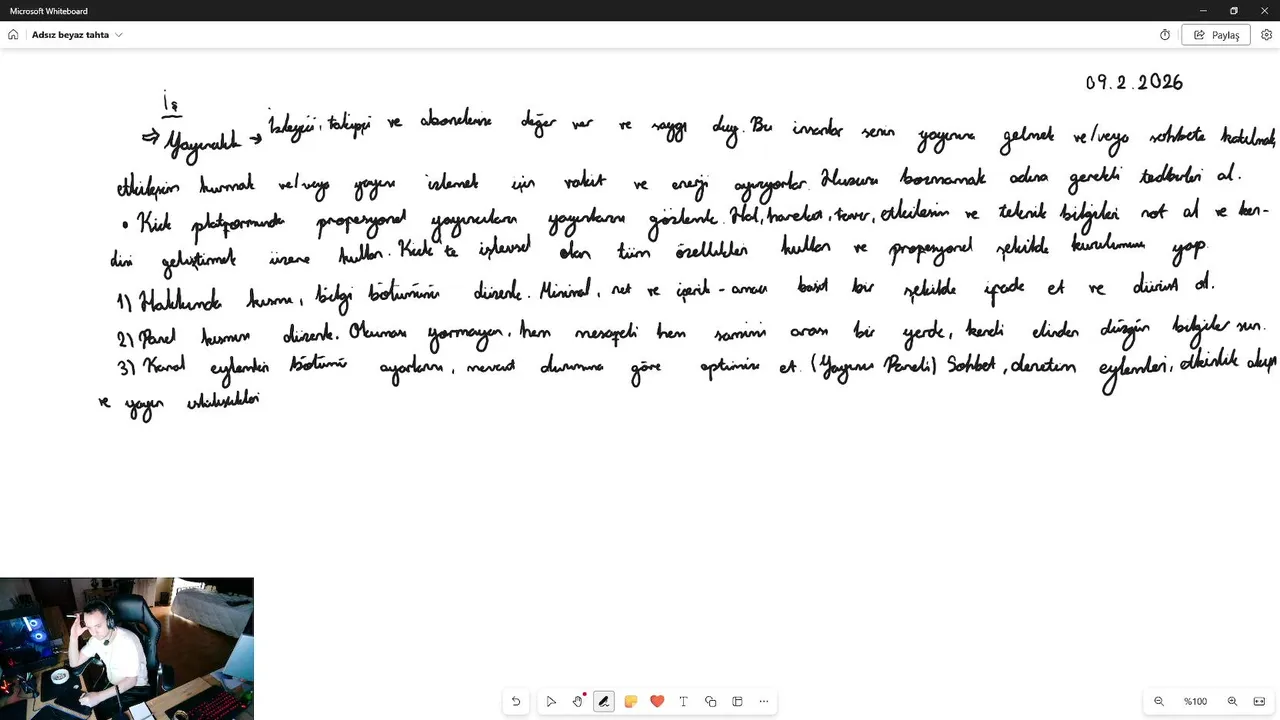 Microsoft Whiteboard
Adsız beyaz tahta
Paylaş
09.2.2026
İş
⇒ Yayıncılık → İzleyici, takipçi ve abonelerine değer ver ve saygı duy. Bu insanlar senin yayınına gelmek ve/veya sohbete katılmak,
etkileşim kurmak ve/veya yayını izlemek için vakit ve enerji ayırıyorlar. Huzuru bozmamak adına gerekli tedbirleri al.
• Kick platformunda profesyonel yayıncıların yayınlarını gözlemle. Hal, hareket, tavır, etkileşim ve teknik bilgileri not al ve ken-
dini geliştirmek üzere kullan. Kick'te işlevsel olan tüm özellikleri kullan ve profesyonel şekilde kurulumunu yap.
1) Hakkında kısmı, bilgi bölümünü düzenle. Minimal, net ve içerik-amacı basit bir şekilde ifade et ve dürüst ol.
2) Panel kısmını düzenle. Okuması yormayan, hem mesafeli hem samimi arası bir yerde, kendi elinden düzgün bilgiler sun.
3) Kanal eylemleri bölümü ayarlarını, mevcut durumuna göre optimize et. (Yayıncı Paneli) Sohbet, denetim eylemleri, etkinlik akışı
ve yayın
%100